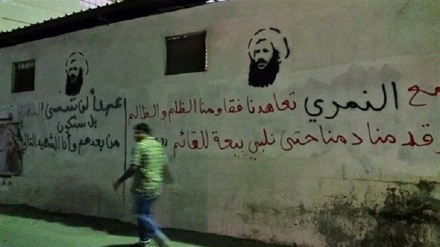 مع النمري تعاهدنا فقاومنا الظلم والظالم
وقد منا دمنا حتى نلبي بيعة للقائم
عهداً لن ننسى
بل سنكون
من بعدهم وأنا الشهيد التالي